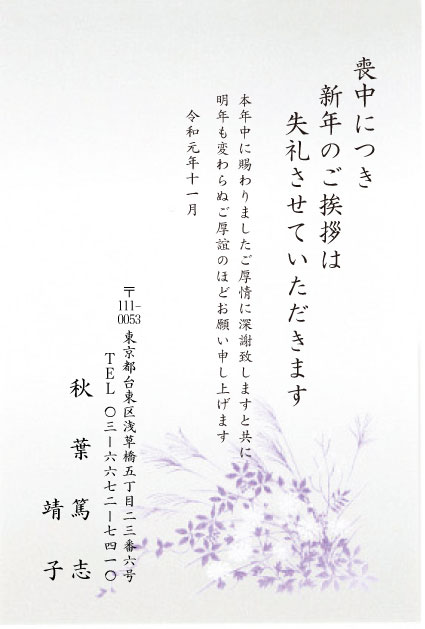 喪中につき
新年のご挨拶は
失礼させていただきます
本年中に賜わりましたご厚情に深謝致しますと共に
明年も変わらぬご厚誼のほどお願い申し上げます
令和元年十一月
〒111-0053 東京都台東区浅草橋五丁目二三番六号
TEL 〇三ー六六七二ー七四一〇
秋葉篤志
靖子